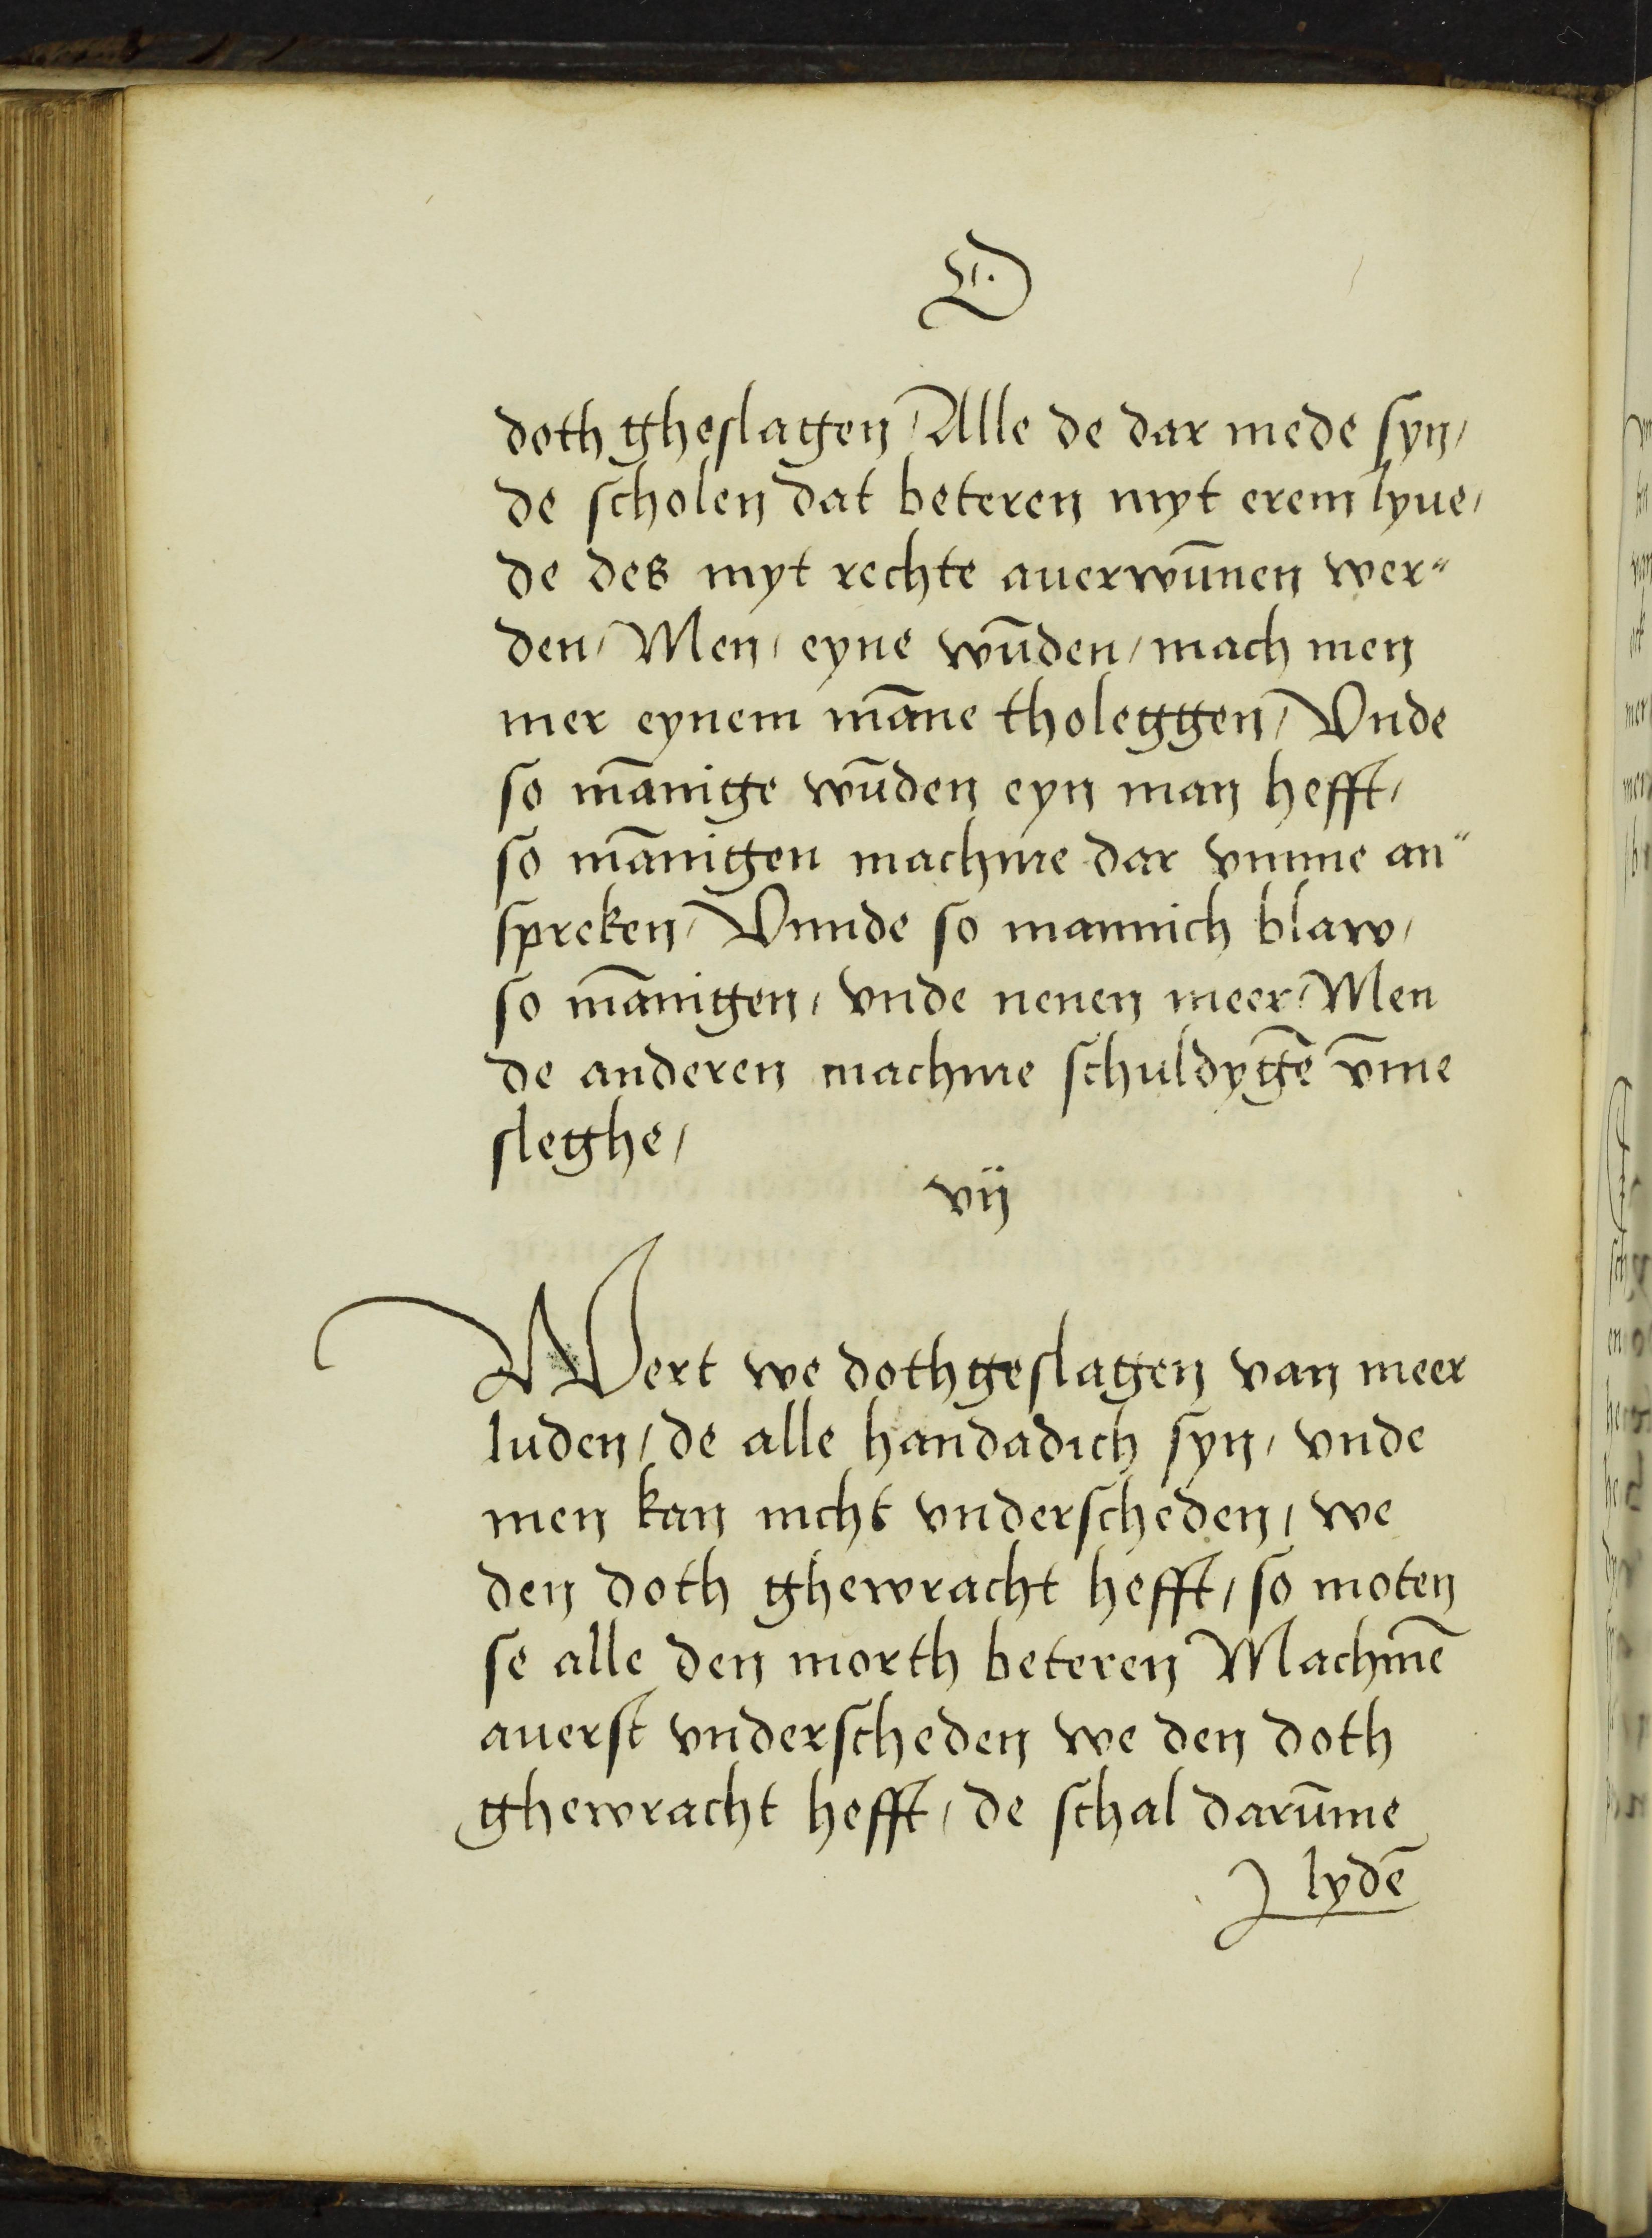 O
doth gheslagen / Alle de dar mede syn /
de scholen dat beteren myt erem lyue /
de des myt rechte auerwūnen wer⸗
den / Men / eyne wūden / mach men
mer eynem māne tholeggen / Vnde
so mānige wūden eyn man hefft /
so mānigen machme dar vmme an⸗
spreken / Vnnde so mannich blaw /
so mānigen / vnde nenen meer / Men
de anderen machme schuldygē v̄me
sleghe /
vij
Wert we dothgeslagen van meer
luden / de alle handadich syn / vnde
men kan nicht vnderscheden / we
den doth ghewracht hefft / so moten
se alle den morth beteren Machmē
auerst vnderscheden we den doth
ghewracht hefft / de schal darūme
lydē